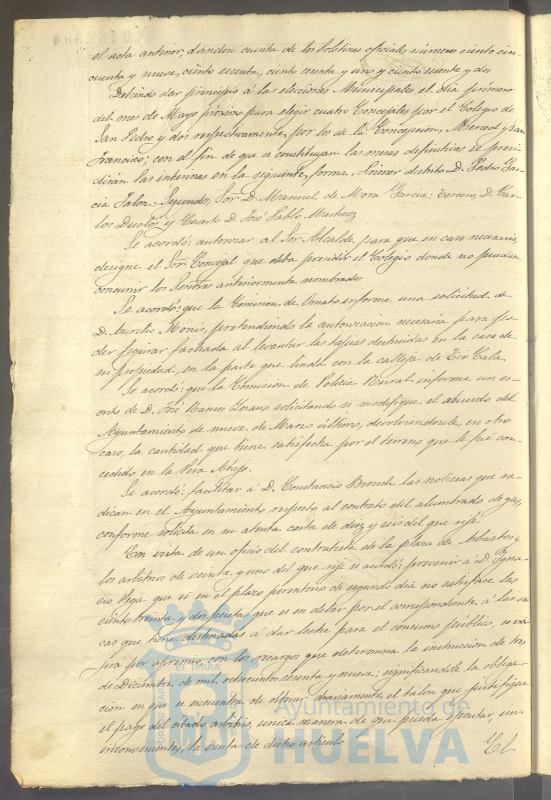 el acta anterior, dándose cuenta de los boletines oficiales número ciento cin-
cuenta y nueve, ciento sesenta, ciento sesenta y uno y ciento sesenta y dos
Debiendo dar principio á las elecciones Municipales el día primero
del mes de Mayo próximo para elegir cuatro Concejales por el Colegio de
San Pedro y dos respectivamente por los de la Concepcion, Merced y San
Francisco; con el fin de que se constituyan las mesas definitivas se presi-
dirán las interinas en la siguiente forma. Primer distrito D. Pedro Gar-
cia Jalon. Segundo, Sor. D. Manuel de Mora Garcia; tercero, D. Car-
los Duclos y Cuarto D. José Pablo Martinez
Se acordó: autorizar al Sor. Alcalde, para que en caso necesario,
designe el Sor. Concejal que deba presidir el Colegio donde no puedan
concurrir los Señores anteriormente nombrados
Se acordó: que la Comision de Ornato informe una solicitud de
D. Aurelio Monis, pretendiendo la autorizacion necesaria para po-
der figurar fachada al levantar las tapias destruidas en la casa de
su propiedad, en la parte que linda con la calleja de Tio Cala
Se acordó: que la Comision de Policia Rural informe un es-
crito de D. José Ramos Lozano solicitando se modifique el acuerdo del
Ayuntamiento de nueve de Marzo último, devolviendosele, en otro
caso, la cantidad que tiene satisfecha por el terreno que le fué con-
cedido en la Vera Abajo.
Se acordó: facilitar á D. Constancio las noticias que ra-
dican en el Ayuntamiento respecto al contrato del alumbrado de gas,
conforme solicita en su atenta carta de diez y seis del que rije
En vista de un oficio del contratista de la plaza de Abastos y
los arbitrios de veinte y uno del que rije se acordó: prevenir á D. Igna-
cio Vega que si en el plazo perentorio de segundo dia no satisface las
ciento treinta y dos pesetas que es en deber por el correspondiente á las va-
cas que tiene destinadas á dar leche para el consumo público, se exi-
jirá por apremio, con los recargos que determina la instruccion de tres
de Diciembre de mil ochocientos sesenta y nueve; significandole la obliga-
cion en que se encuentra de obtener diariamente el talon que justifique
el pago del citado arbitrio, unica manera de que pueda ejecutar, sin
inconvenientes, la venta de dicho artículo
El
Ayuntamiento de
HUELVA